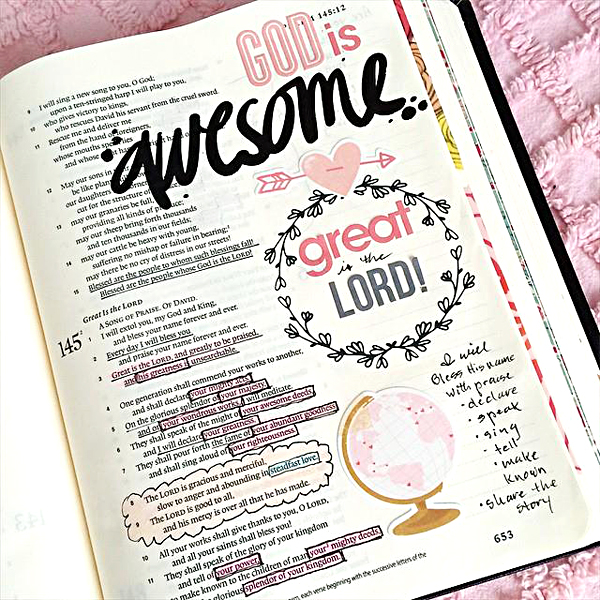 145:12
GOD is
awesome
9 I will sing a new song to you, O God;
upon a ten-stringed harp I will play to you,
10 who gives victory to kings,
who rescues David his servant from the cruel sword.
11 Rescue me and deliver me
from the hand of foreigners,
whose mouths speak
and whose right hand
12 May our sons in
be like plan
our daughters corner
cut for the structure of
13 may our granaries be full,
providing all kinds of produce;
may our sheep bring forth thousands
and ten thousands in our fields;
14 may our cattle be heavy with young,
suffering no mishap or failure in bearing;
may there be no cry of distress in our streets!
15 Blessed are the people to whom such blessings fall!
Blessed are the people whose God is the LORD!
great
is the
LORD!
Great Is the LORD
A SONG OF PRAISE. OF DAVID.
145 1 I will extol you, my God and King,
and bless your name forever and ever.
2 Every day I will bless you
and praise your name forever and ever.
3 Great is the LORD, and greatly to be praised,
and his greatness is unsearchable.
4 One generation shall commend your works to another,
and shall declare your mighty acts.
5 On the glorious splendor of your majesty,
and on your wondrous works, I will meditate.
6 They shall speak of the might of your awesome deeds,
and I will declare your greatness.
7 They shall pour forth the fame of your abundant goodness
and shall sing aloud of your righteousness.
8 The LORD is gracious and merciful,
slow to anger and abounding in steadfast love.
9 The LORD is good to all,
and his mercy is over all that he has made.
10 All your works shall give thanks to you, O LORD,
and all your saints shall bless you!
11 They shall speak of the glory of your kingdom
and tell of your power,
12 to make known to the children of man your mighty deeds,
and the glorious splendor of your kingdom.
I will
Bless His name
with praise
• declare
• speak
• sing
• tell
• make
known
• share the
story
653
each verse beginning with the successive letters of the